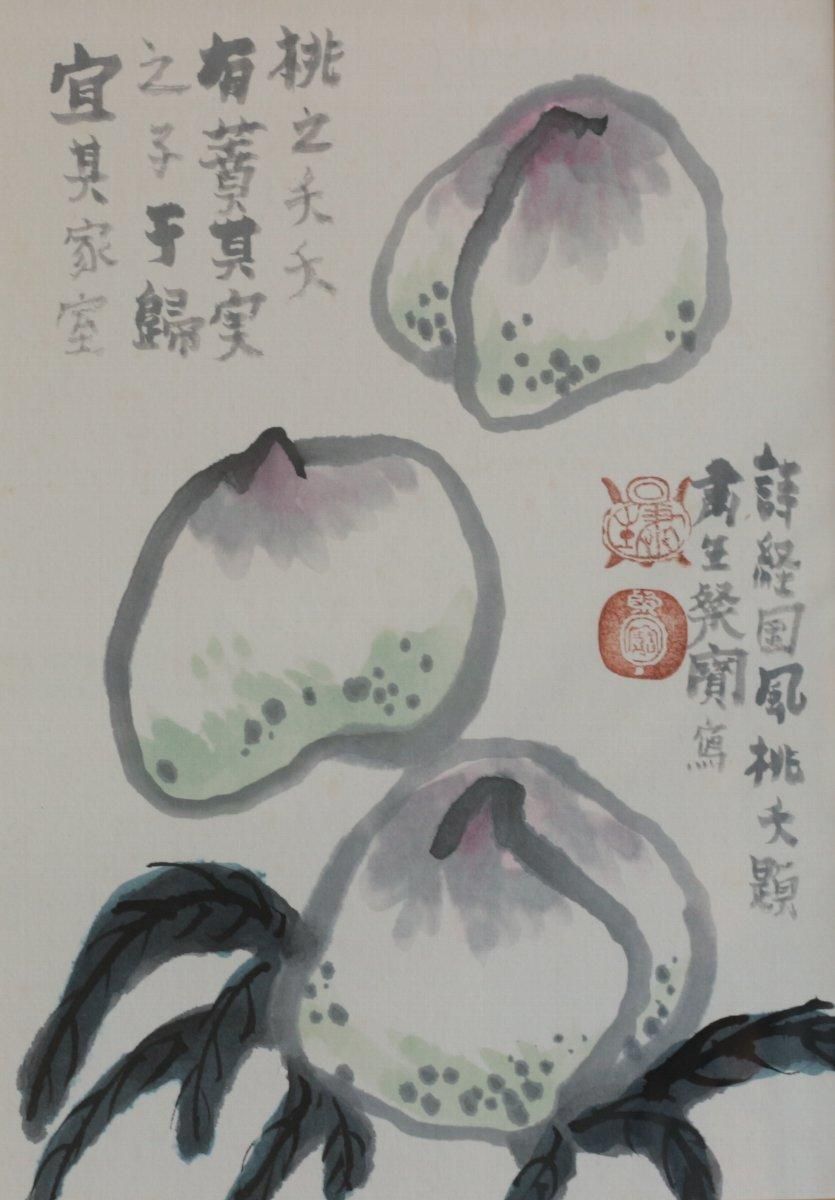 桃之夭夭
有蕡其実
之子于歸
宜其家室
詩経国風桃夭題
生 寶寫